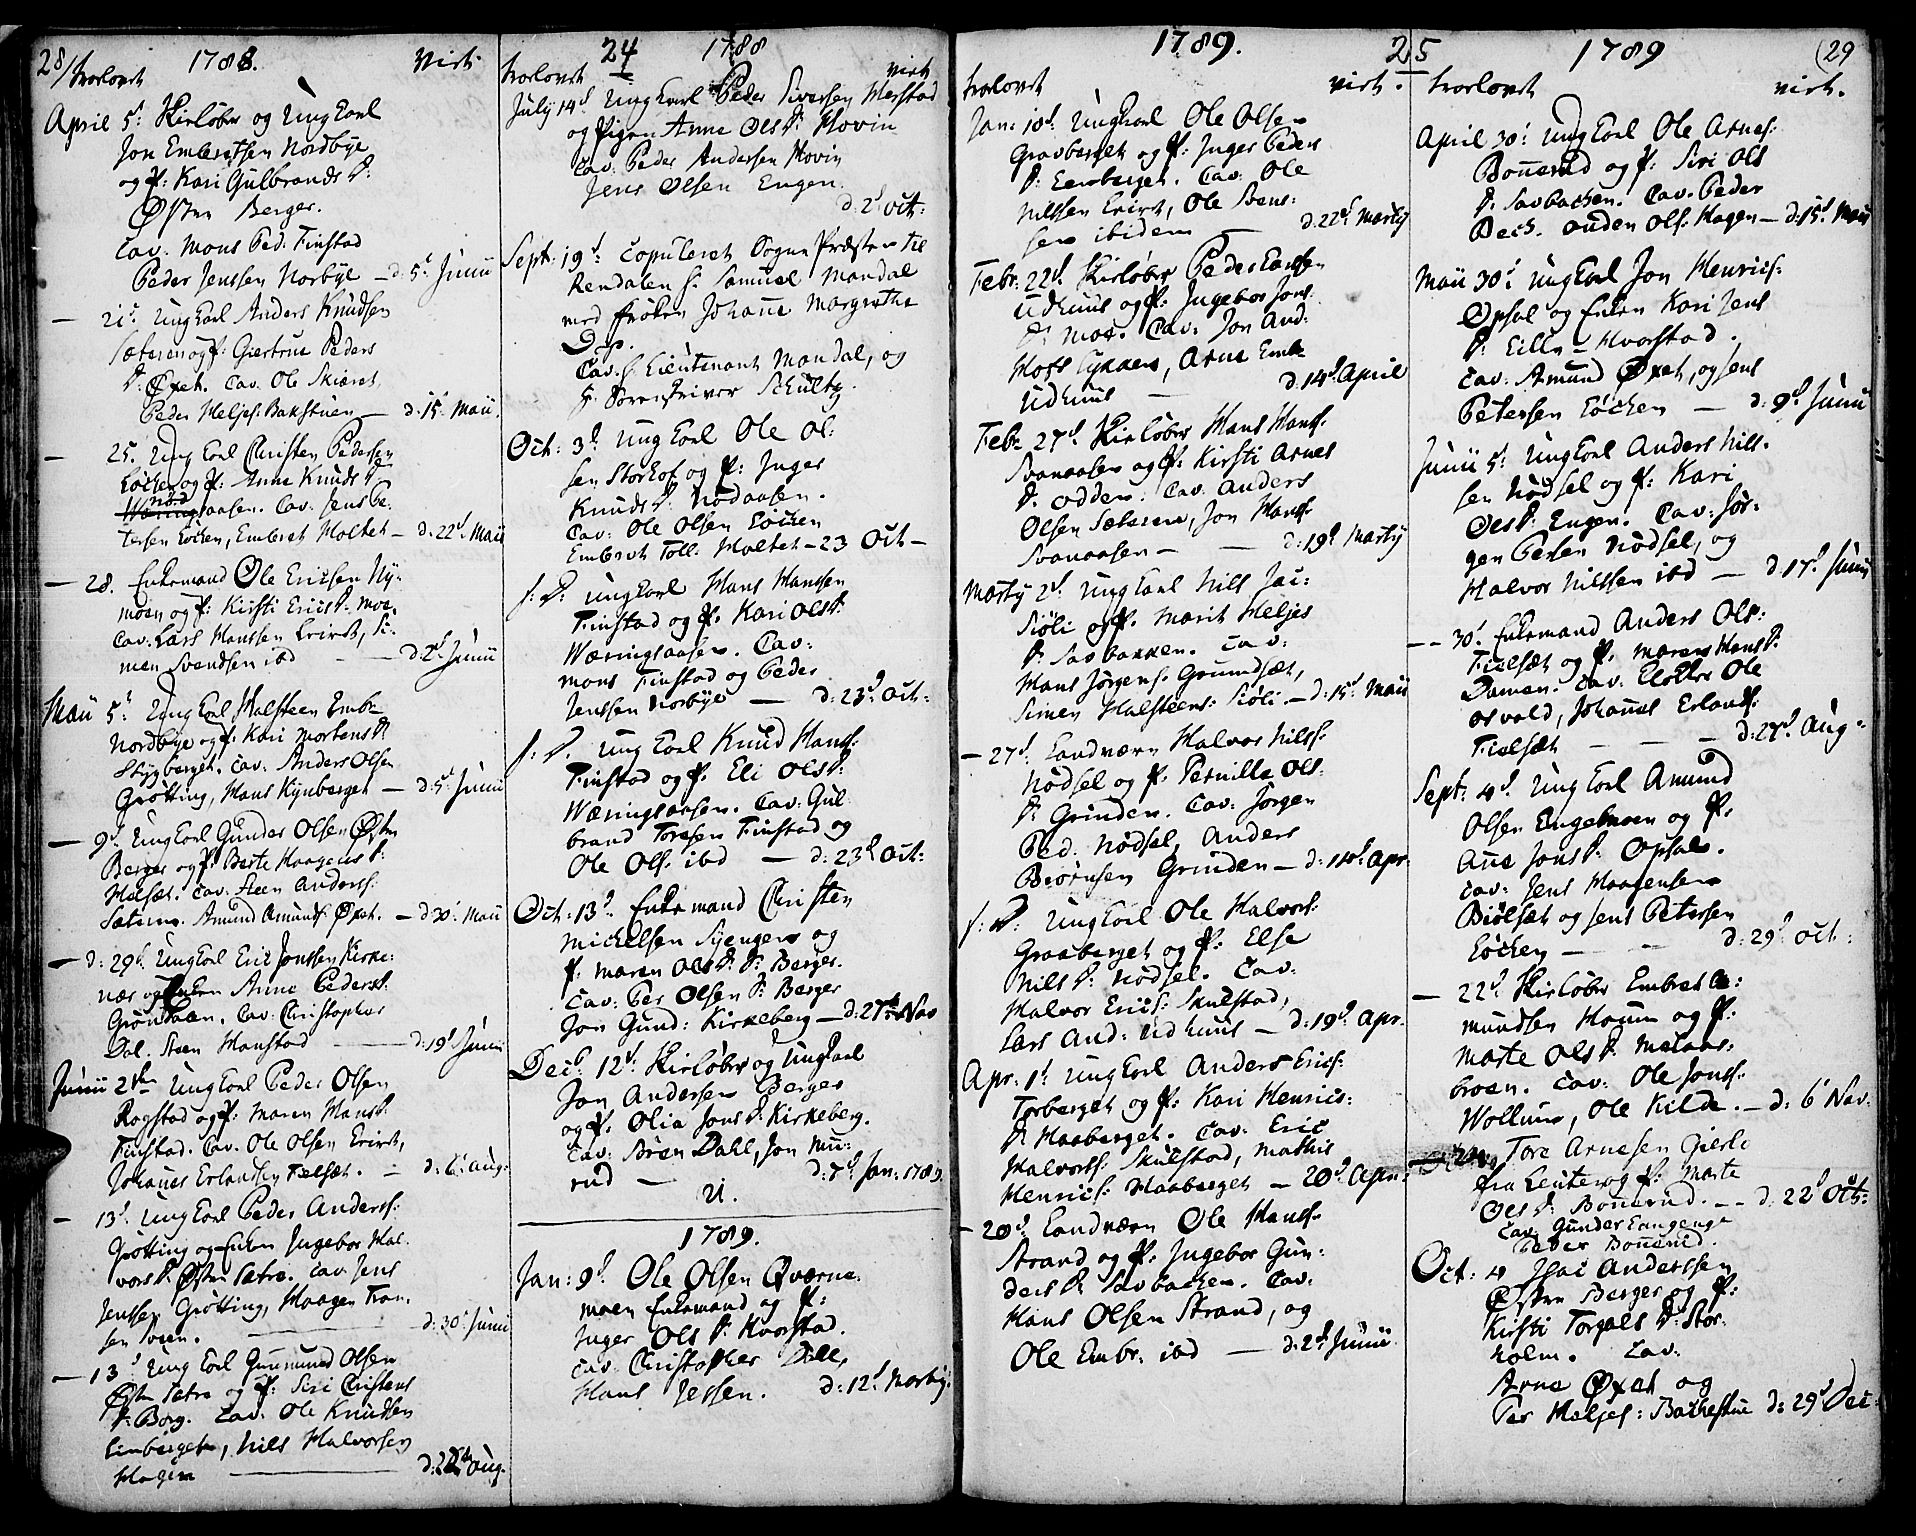 28/ 1788. Virt.
trolovet
April 5t Skirløber og Ung Karl
Jon Embretsen Nordbye
og P: Kari Gulbrands D:
Østen Berger.
Cav. Mons Ped. Finstad
Peder Jenssen Norbye — d: 5t Junii
— 21t Ung Karl Anders Knudsen
Sæteren og P: Giertrue Peders
D: Øxet. Cav. Ole Skiæret
Peder Heljes: Bakstuen — d: 15t Maii.
— 25. Ung Karl Christen Pedersen
Løchen og P: Anne Knuds D
Nødaasen. Cav: Jens Pe:
tersen Løchen, Embret Moltet — d: 22t Maii
— 28. Enkemand Ole Ericsen Ny:
moen og P: Kirsti Erics D: Moe.
Cav: Lars Hanssen Lvirst, Si:
men Svendsen ibd — d: 2t Junii
Maii 5t Ung Karl Halsteen Embr
Nordbye og P: Kari Mortens D
Stygberget. Cav: Anders Olsen
Grøtting, Hans Kynberget — d: 5t Junii
— 9t Ung Karl Gunder Olsen Østen
Berger og P: Berte Haagens D:
Hølsæt. Cav: Steen Anderss:
Sæteren. Amund Amunds. Øxet. — d 30t Maii
— d: 29t Ung Karl Eric Jonssen Kirke:
nær og Enken Anne Peders D.
Grøndalen. Cav: Christopher
Dal. Steen Hanstad — d: 19t Junii
Junii 2den Ung Karl Peder Olsen
Rogstad og P: Maren Hans D.
Finstad. Cav. Ole Olsen Lvirst,
Johannes Erlandsen Fielsæt. — d: 6t Aug:
— 13t Ung Karl Peder Anderss:
Grøtting og Enken Ingebor Hal:
vors D. Østen Sætre. Cav Jens
Jenssen Grøtting, Haagen Tron:
sen — d: 30t Junii
— 13t Ung Karl Gunmund Olsen
Østen Sætre og P: Siri Christens
D: Borg. Cav: Ole Knudsen
Lunberget, Nils Halvorsen
Hagen — Aug.
24 1788
trolovet virt
July 14t Ung Karl Peder Siversen Merstad
og Pigen Anne Ols D: Hovin
Cav: Peder Andersen Hovin
Jens Olsen Engen.
d: 2t Oct:
Sept: 19t Copuleret Sogne Præsten til
Rendalen Hr. Samuel Mandal
med Frøken Johanne Margrethe
Cav. Hr Lieutenant Mandal, og
Hr. Sorenskriver Schultz.
Oct: 3t Ung Karl Ole Ol:
sen Storhof og P: Inger
Knuds D: Nødaasen.
Cav: Ole Olsen Løcken
Embret Toll: Moltet — 23 Oct —
s: D: Ung Karl Hans Hanssen
Finstad og P: Kari Ols D:
Wæringsaasen. Cav:
Mons Finstad og Peder
Jenssen Norbye — d: 23t Oct:
s: D. Ung Karl Knud Hans:
Finstad og P. Eli Ols D:
Wæringsaasen. Cav: Gul:
brand Toresen Finstad og
Ole Ols: ibd — d: 23t Oct:
Oct: 13t. Enkemand Christen
Michelsen Syenger og
P. Maren Ols D. D: Berger.
Cav: Per Olsen D: Berger
Jon Gund: Kirkeberg — d: 27t Nov
Dec: 12t Skirløber og Ung Karl
Jon Andersen Berger
og P. Olia Jons D: Kirkeberg.
Cav: Bren Dahl, Jon Mu:
rud — d: 7t Jan: 1789.
1789.
Jan: 9t Ole Olsen Qværne:
moen Enkemand og P:
Inger Ols D: Kvorstad.
Cav: Christopher Dill,
Hans Jessen. d: 12t Marty.
1789. 25
trolovet virt.
Jan: 10t Ung Karl Ole Olsen
Gravberget og P: Inger Peders
D: Eenberget. Cav: Ole
Nilssen Lvirst, Ole Svens:
sen ibidem — d: 22t Marty
Febr: 22t Skirløber Peder Larssen
Udhuus og P: Ingebor Jons
D: Moe. Cav: Jon And:
Moss Lykken, Arne Embr
Udhuus — d: 14t April
Febr 27t Skirløber Hans Hans:
Svanaasen og P: Kirsti Arnes
D: Odden: Cav: Anders
Olsen Sæteren, Jon Hans:
Svanaasen — d: 19t Marty
Marty 2t Ung Karl Nils Jac:
Siøli og P. Marit Heljes
D: Savbakken. Cav:
Hans Jørgens: Grundsæt,
Simen Halsteens: Siøli. — d: 15t Maii
— 27t. Landværn Halvor Nilss:
Nødsel og P. Pernille Ols:
D: Grinden. Cav: Jørgen
Ped. Nødsel, Anders
Biørnsen Grinden — d: 14t Apr:
s: D: Ung Karl Ole Halvors:
Graaberget og P: Else
Nils D: Nødsel. Cav:
Halvor Erics: Skulstad,
Lars And: Udhuus — d: 19t Apr.
Apr: 1t Ung Karl Anders Erics:
Torberget og P: Kari Henrics:
D: Haaberget. Cav: Eric
Halvors: Skulstad, Mathis
Henrics: Haaberget — 20t Apr:
— 20t Landværn Ole Hans:
Strand og P: Ingebor Gun:
ders D: Savbacken. Cav:
Hans Olsen Strand, og
Ole Embr: ibd — d: 2t Junii
1789 (29
trolovet virt.
April 30t Ung Karl Ole Arnes:
Bonnerud og P: Siri Ols
D: Savbacken. Cav: Peder
Bech. Anden Ols: Hagen — d: 15t Maii
Maii 30t Ung Karl Jon Henrics:
Opsal og Enken Kari Jens
D: Lille — Kvorstad.
Cav: Amund Øxet, og Jens
Petersen Løchen — d: 9t Junii
Junii 5t Ung Karl Anders Nils.
sen Nødsel og P: Kari
Ols D: Engen. Cav: Jør:
gen Persen Nødsel, og
Halvor Nilssen ibd — d: 17t Junii
— 30t Enkemand Anders Ols:
Fielsæt og P. Maren Hans D.
Damen. Cav: Klocker Ole
Osvold, Johannes Erlands.
Fielsæt — d: 27t Aug:
Sept: 4t. Ung Karl Amund
Olsen Engelmoen og P:
Anne Jons D: Opsal.
Cav: Jens Haagensen
Biølsæt og Jens Petersen
Løchen — d: 29t Oct:
— 22t Skirløber Embret A:
mundsen Hoium og P:
Marte Ols D: Melaas:
broen. Cav: Ole Jons:
Wollum, Ole Kilde. — d: 6t Nov:
Tore Arnesen Gierle
fra Leuten og P: Marte
Ols D: Bonnerud. — d: 22t Oct:
Cav. Gunder Langenge
Peder Bonnerud.
Oct: 4 Isac Anderssen
Østen Berger og P:
Kirsti Torgals D: Stor:
holm. Cav:
Arne Øxet og
Per Heljes: Bachestue d: 29t Dec: